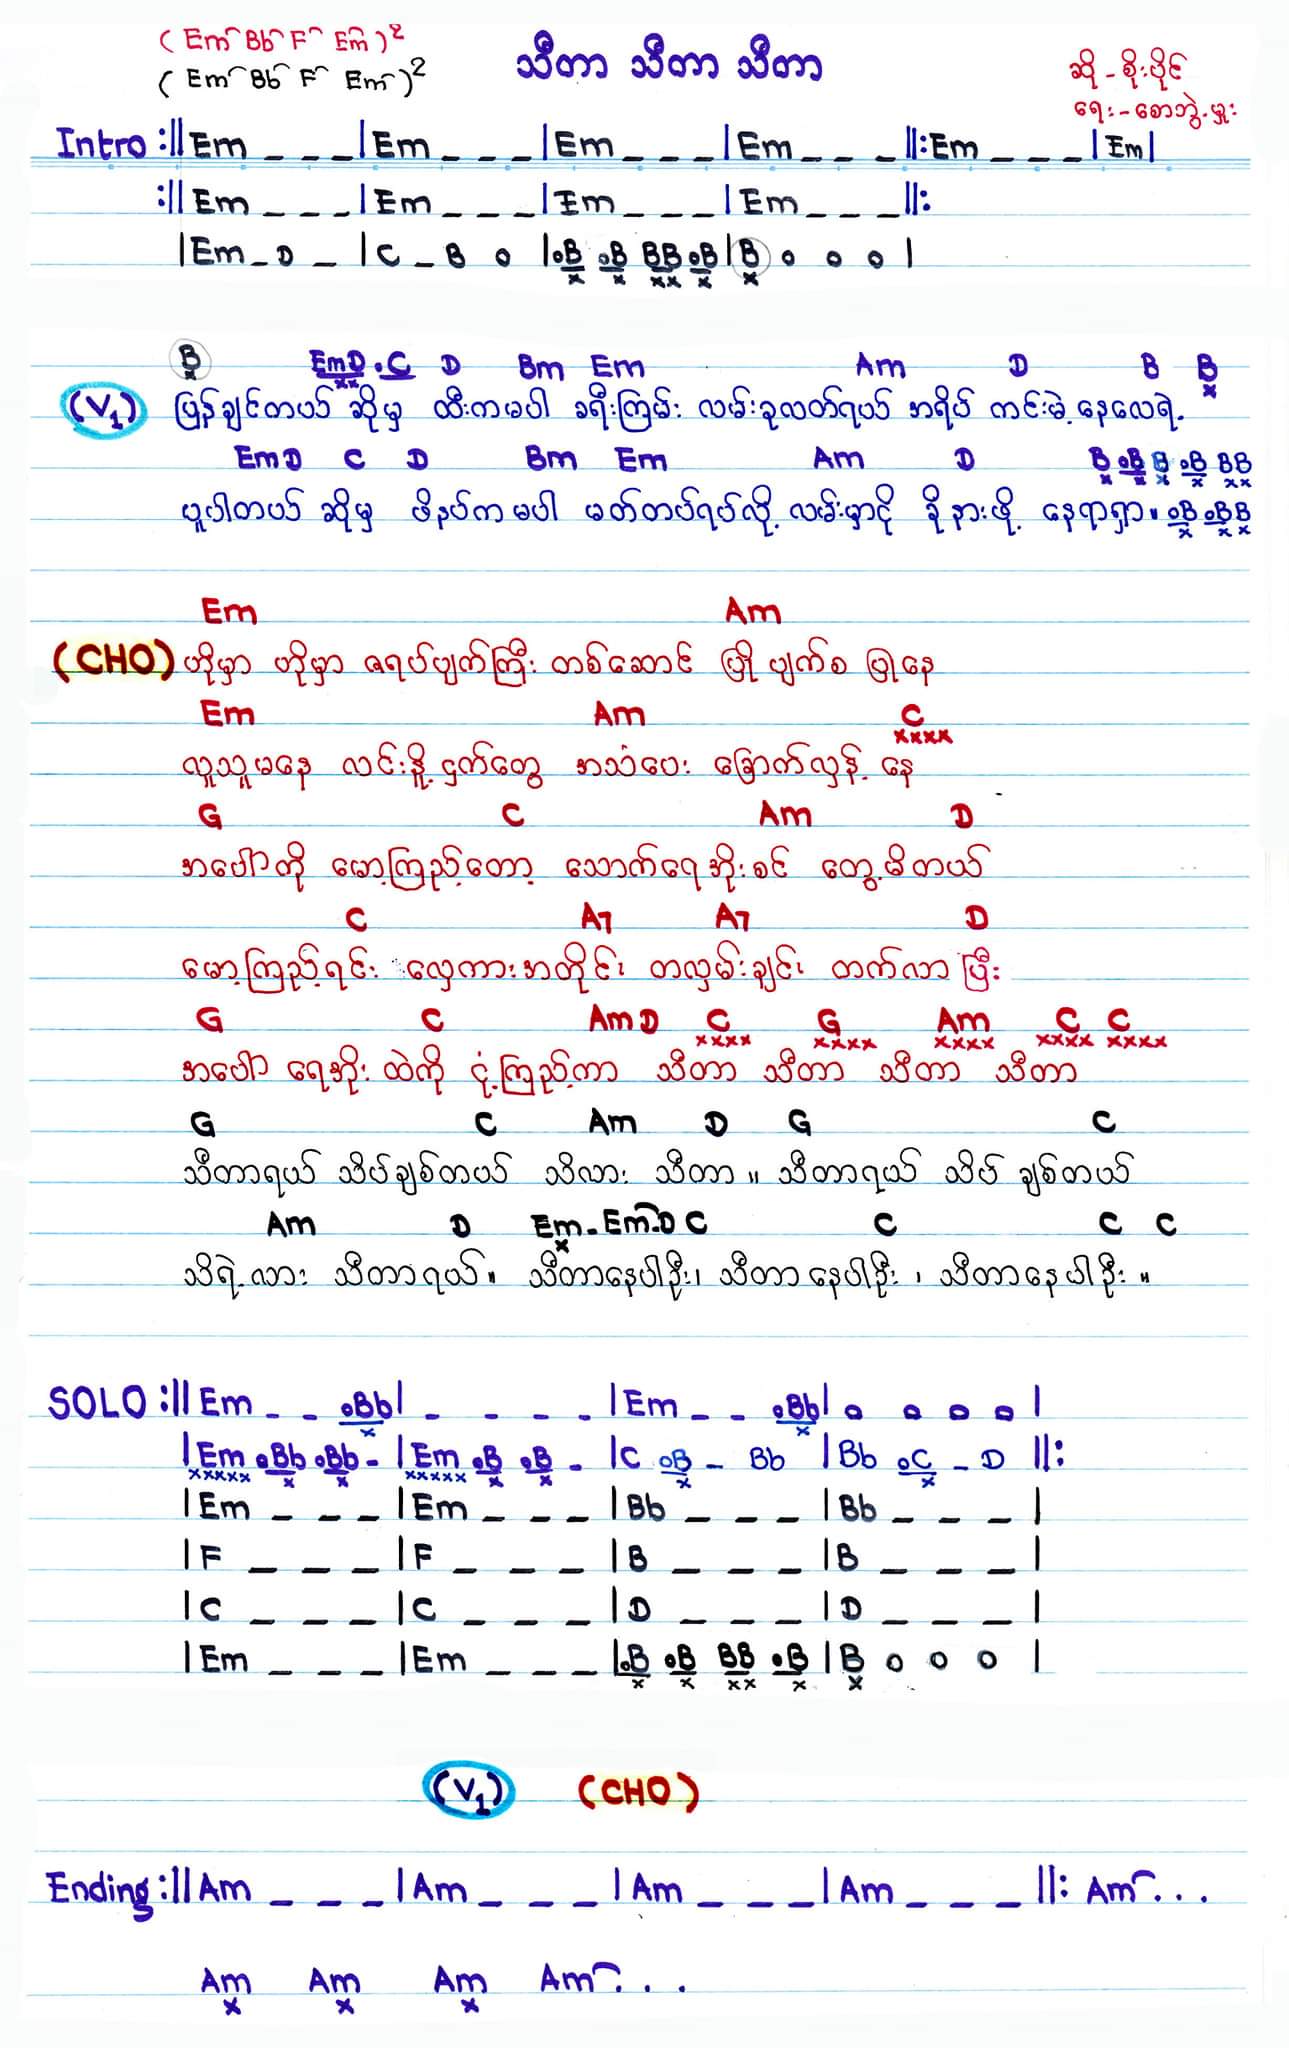 ( Em Bb F Em )²
( Em Bb F Em )²
သီတာ သီတာ သီတာ
ဆို - စိုးပိုင်
ရေး - စောဘွဲ့မှူး
Intro :|| Em _ _ _ | Em _ _ _ | Em _ _ _ | Em _ _ _ ||: Em _ _ _ | Em |
:|| Em _ _ _ | Em _ _ _ | Em _ _ _ | Em _ _ _ ||:
| Em _ D _ | C _ B o | .B .B BB .B | B o o o |
x x xx x x
B EmD . C D Bm Em Am D B B
x xx x
(V1) ပြန်ချင်တယ် ဆိုမှ ထီးကမပါ ခရီးကြမ်း လမ်းခုလတ်ရယ် အရိပ် ကင်းမဲ့နေလေရဲ့
EmD C D Bm Em Am D B oB B oB BB
x x x x xx
ပူပါတယ် ဆိုမှ ဖိနပ်ကမပါ မတ်တပ်ရပ်လို့ လမ်းမှာငို ခိုနားဖို့ နေရာရှာ။ oB oBB
x xx
Em Am
(CHO) ဟိုမှာ ဟိုမှာ ဇရပ်ပျက်ကြီး တစ်ဆောင် ပြို ပျက်စ ပြုနေ
Em Am C
xxxx
လူသူမနေ လင်းနို့ ငှက်တွေ အသံပေး ခြောက်လှန့် နေ
G C Am D
အပေါ်ကို မော့ကြည့်တော့ သောက်ရေအိုးစင် တွေ့မိတယ်
C A7 A7 D
မော့ကြည့်ရင်း လှေကားအတိုင်း တလှမ်းချင်း တက်လာ ပြီး
G C Am D C G Am C C
xxxx xxxx xxxx xxxx xxxx
အပေါ် ရေအိုး ထဲကို ငုံ့ကြည့်ကာ သီတာ သီတာ သီတာ သီတာ
G C Am D G C
သီတာရယ် သိပ်ချစ်တယ် သိလား သီတာ ။ သီတာရယ် သိပ် ချစ်တယ်
Am D Em - Em - D C C C C
x
သိရဲ့လား သီတာရယ်။ သီတာနေပါဦး၊ သီတာနေပါဦး ၊ သီတာနေပါဦး ။
SOLO :|| Em _ _ oBb | _ _ _ _ | Em _ _ oBb | o o o o |
x x
| Em oBb oBb - | Em oB oB - | C oB - Bb | Bb oC - D ||:
xxxxx x x xxxxx x x x x
| Em _ _ _ | Em _ _ _ | Bb _ _ _ | Bb _ _ _ |
| F _ _ _ | F _ _ _ | B _ _ _ | B _ _ _ |
| C _ _ _ | C _ _ _ | D _ _ _ | D _ _ _ |
| Em _ _ _ | Em _ _ _ | .B .B BB .B | B o o o |
x x xx x x
(V1) (CHO)
Ending :|| Am _ _ _ | Am _ _ _ | Am _ _ _ | Am _ _ _ ||: Am . . .
Am Am Am Am . . .
x x x